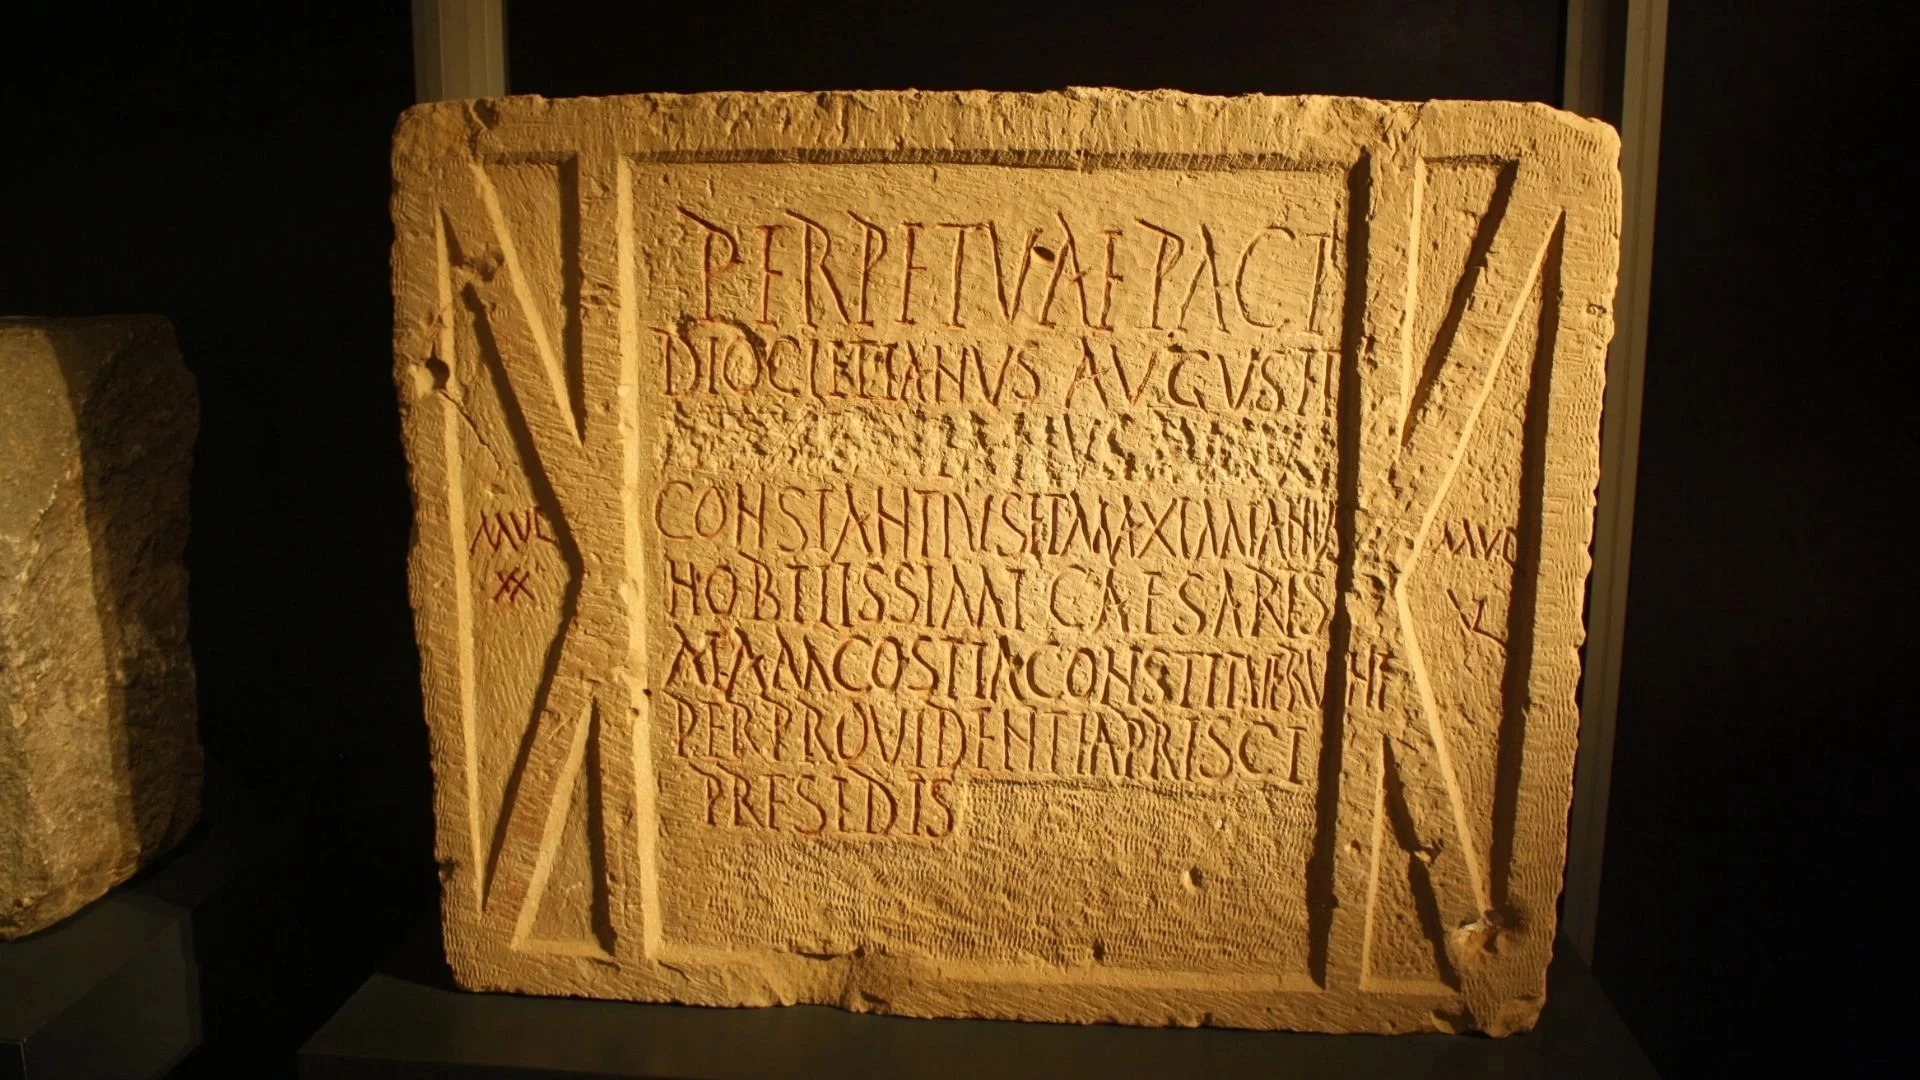 PERPETVAE PACI
DIOCLETIANVS AVGVSTI
CONSTANTIVS ET MAXIMIANVS
NOBILISSIMI CAESARIS
MEAM COSTIA CONSTITVERVNT
PER PROVIDENTIA PRISCI
PRESEDIS
MVC
XX
MVC
XL